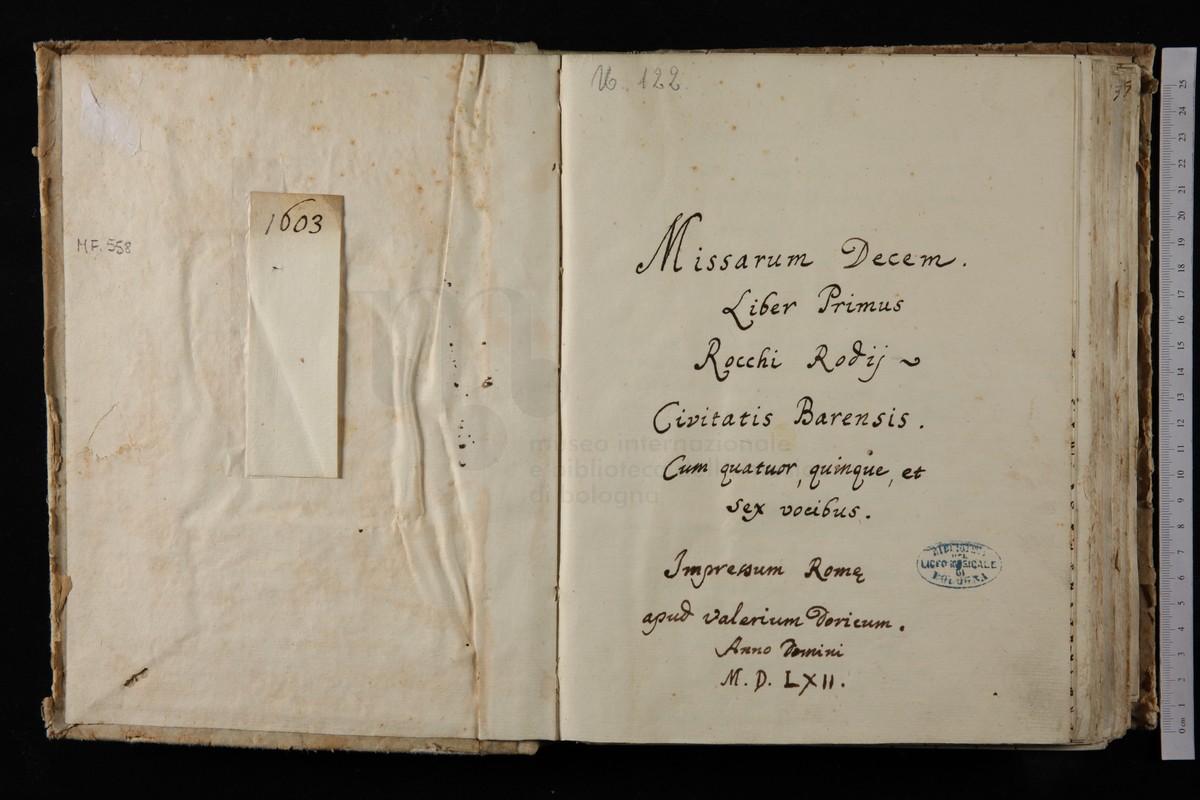 1603
MF. 558
U. 122.
Missarum Decem.
Liber Primus
Rocchi Rodij ~
Civitatis Barensis.
Cum quatuor, quinque, et
sex vocibus.
Impressum Romę
apud Valerium Doricum.
Anno Domini
M. D. LXII.
LICEO MUSICALE
DI
BOLOGNA
museo internazionale
e biblioteca
di bologna
0 cm 1 2 3 4 5 6 7 8 9 10 11 12 13 14 15 16 17 18 19 20 21 22 23 24 25